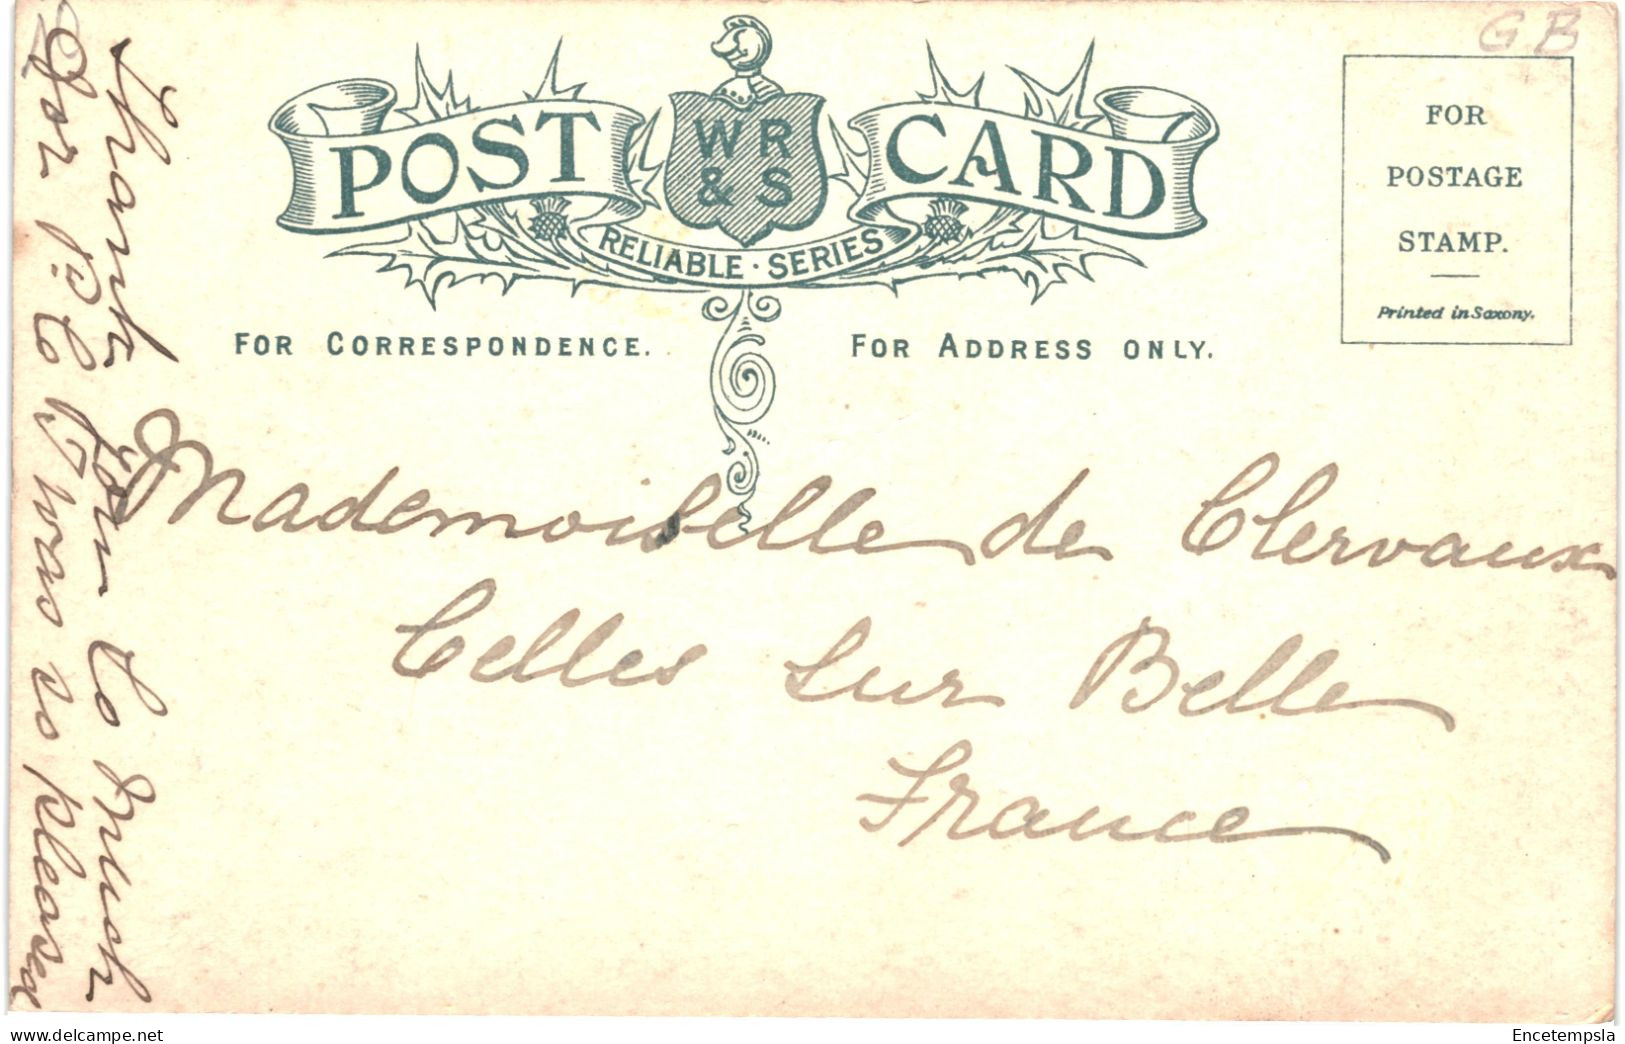 G B
POST CARD
W R
& S
RELIABLE · SERIES
FOR CORRESPONDENCE.
FOR ADDRESS ONLY.
FOR
POSTAGE
STAMP.
Printed in Saxony.
Mademoiselle de Clervaux
Celles sur Belle
France
Thanks you so much
for P.C I was so pleased
www.delcampe.net
Encetempsla